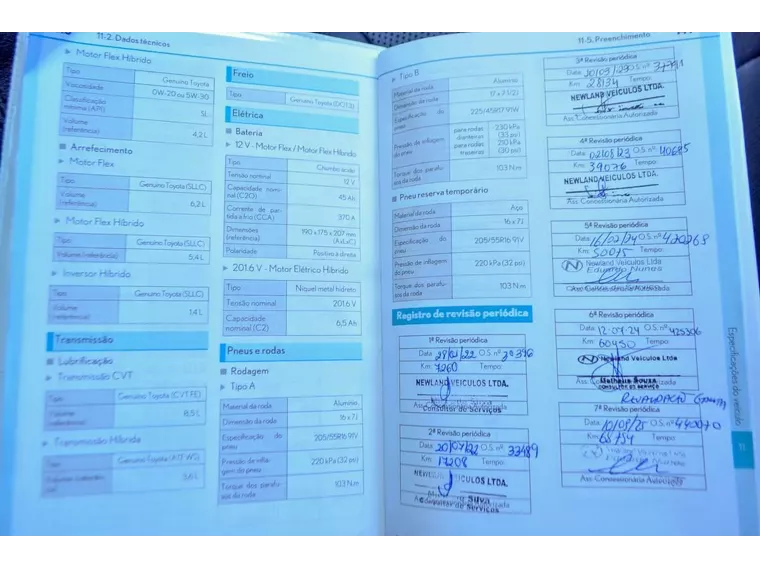 11-2. Dados técnicos
▶ Motor Flex Híbrido
Tipo Genuíno Toyota
Viscosidade 0W-20 ou 5W-30
Classificação mínima (API) SL
Volume (referência) 4,2 L
■ Arrefecimento
▶ Motor Flex
Tipo Genuíno Toyota (SLLC)
Volume (referência) 6,2 L
▶ Motor Flex Híbrido
Tipo Genuíno Toyota (SLLC)
Volume (referência) 5,4 L
▶ Inversor Híbrido
Tipo Genuíno Toyota (SLLC)
Volume (referência) 1,4 L
Transmissão
■ Lubrificação
▶ Transmissão CVT
Tipo Genuíno Toyota (CVT FE)
Volume (referência) 8,5 L
▶ Transmissão Híbrida
Tipo Genuíno Toyota (ATF WS)
Volume 3,6 L
Freio
Tipo Genuíno Toyota (DOT3)
Elétrica
■ Bateria
▶ 12 V - Motor Flex / Motor Flex Híbrido
Tipo Chumbo ácido
Tensão nominal 12 V
Capacidade nominal (C20) 45 Ah
Corrente de partida a frio (CCA) 370 A
Dimensões (referência) 190 x 175 x 207 mm (AxLxC)
Polaridade Positivo à direita
▶ 201.6 V - Motor Elétrico Híbrido
Tipo Níquel metal hidreto
Tensão nominal 201.6 V
Capacidade nominal (C2) 6,5 Ah
Pneus e rodas
■ Rodagem
▶ Tipo A
Material da roda Alumínio
Dimensão da roda 16 x 7J
Especificação do pneu 205/55R16 91V
Pressão de inflagem do pneu 220 kPa (32 psi)
Torque dos parafusos da roda 103 N.m
11-5. Preenchimento
▶ Tipo B
Material da roda Alumínio
Dimensão da roda 17 x 7 1/2J
Especificação do pneu 225/45R17 91W
Pressão de inflagem do pneu para rodas dianteiras 230 kPa (33 psi) para rodas traseiras 210 kPa (30 psi)
Torque dos parafusos da roda 103 N.m
■ Pneu reserva temporário
Material da roda Aço
Dimensão da roda 16 x 7J
Especificação do pneu 205/55R16 91V
Pressão de inflagem do pneu 220 kPa (32 psi)
Torque dos parafusos da roda 103 N.m
Registro de revisão periódica
1ª Revisão periódica
Data 28/01/22 O.S. nº
Km 7260 Tempo
NEWLAND VEICULOS LTDA.
Consultor de Serviços
2ª Revisão periódica
Data 20/07/22 O.S. nº 33489
Km 17208 Tempo
VEICULOS LTDA.
Silva
Consultor de Serviços
3ª Revisão periódica
Data 20/03/23 O.S. nº
Km 28134 Tempo
NEWLAND VEICULOS LTDA.
Ass: Concessionária Autorizada
4ª Revisão periódica
Data 02/08/23 O.S. nº 40685
Km 39076 Tempo
NEWLAND VEICULOS LTDA.
Ass: Concessionária Autorizada
5ª Revisão periódica
Data 16/02/24 O.S. nº 420268
Km 50075 Tempo
Newland Veículos Ltda
Eduardo Nunes
Ass: Concessionária Autorizada
6ª Revisão periódica
Data 12-07-24 O.S. nº 425306
Km 60450 Tempo
Newland Veículos Ltda
Matheus Souza
CONSULTOR DE SERVIÇOS
7ª Revisão periódica
Data 10/08/25 O.S. nº 440070
Km 68754 Tempo
Ass: Concessionária Autorizada
Especificações do veículo
11